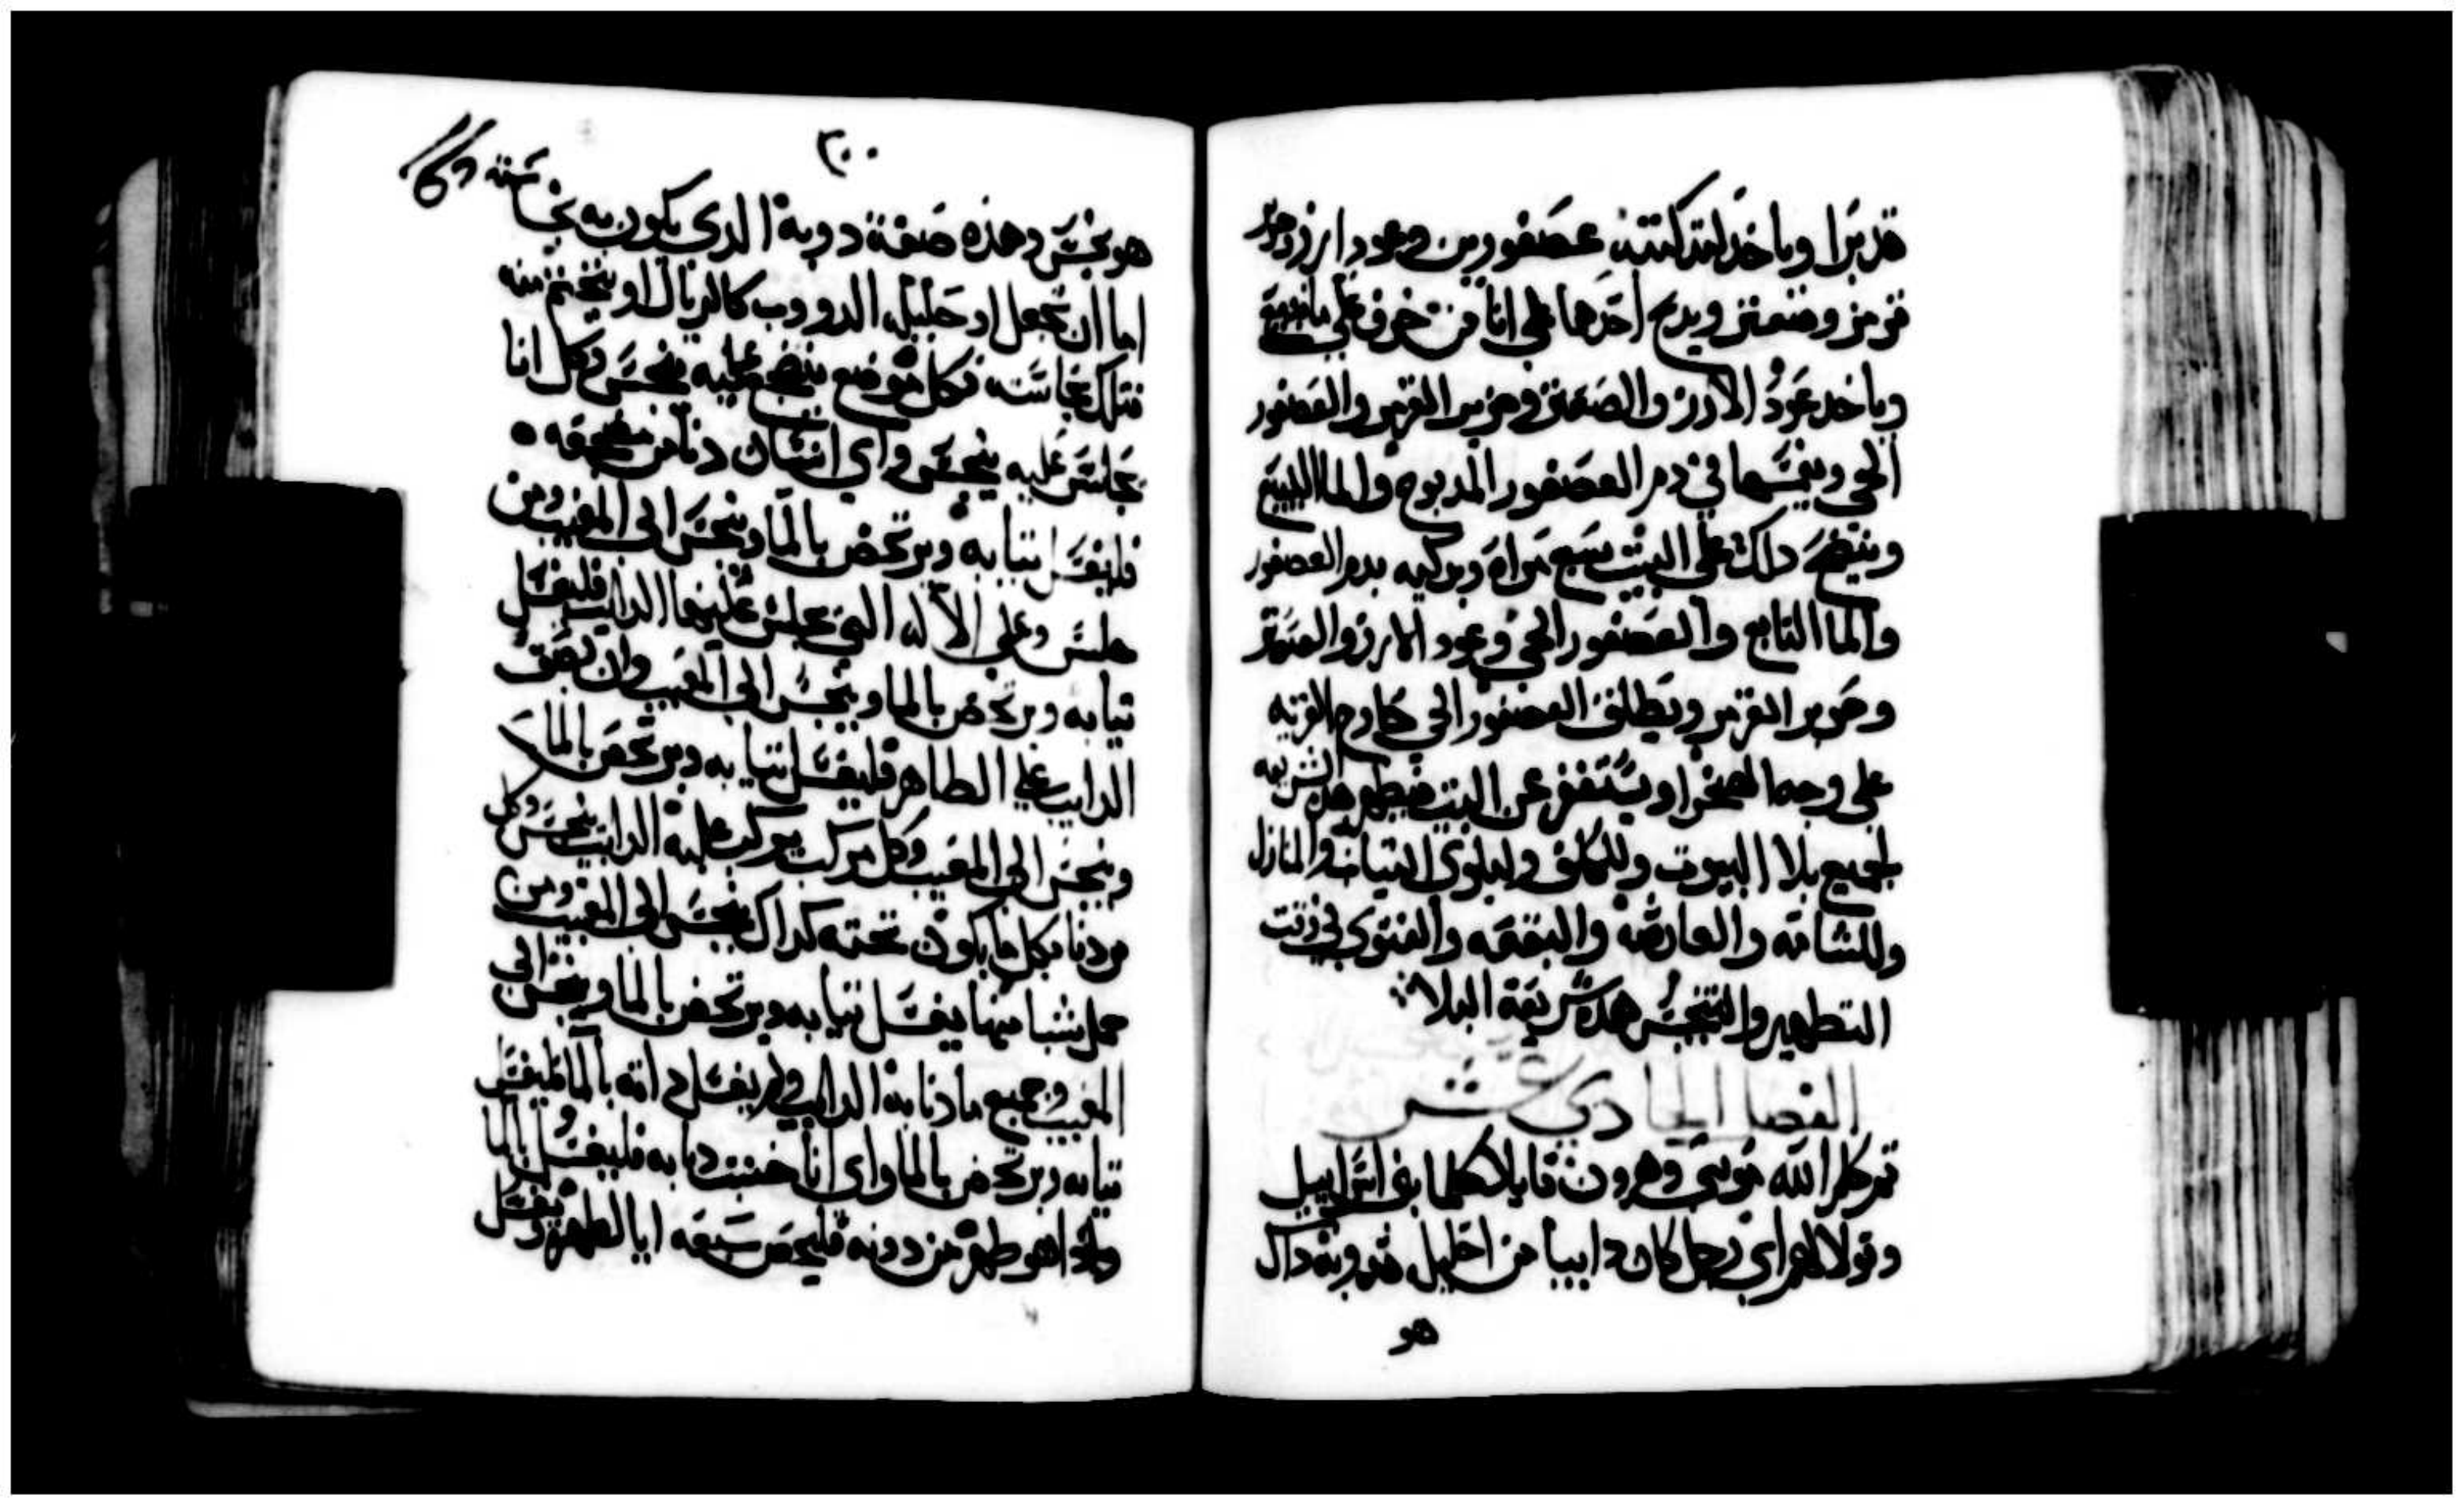 قد برا وياخد لتدكيته عصفورين وعود ارز وحرير
قرمز وصعتر ويدبح احدهما على انا من خزف على ما نبيع
وياخد عود الارز والصعتر وحرير القرمز والعصفور
الحي ويغمسها في دم العصفور المدبوح والما النبيع
وينضح داك على البيت سبع مراة ويزكيه بدم العصفور
والما النابع والعصفور الحي وعود الارز والصعتر
وحرير القرمز ويطلق العصفور الحي خارج القريه
على وجه الصحرا ويستغفر عن البيت فيطهر هده الشريعه
لجميع بلا البيوت وللكلف ولبلوي التياب والمنازل
وللشامه والعارضه والبقعه والفتوي في وقت
التطهير والتنجس هده شريعة البلا
الفصل الحادي عشر
تم كلم الله موسي وهرون قايلا كلما بني اسراييل
وقولا لهم اي رجل كان دايبا من احليل دوبه داك
هو
٢٠٠
هو نجس وهذه صفة دوبه الدي يكون به نجاسته
اما ان يجعل احليله الدووب كالريال او يختم منه
فتلك نجاسته فكل موضع يضجع عليه ينجس وكل انا
يجلس عليه ينجس واي انسان دنا من مضجعه
فليغسل تيابه ويرتحض بالما وينجس الي المغيب ومن
جلس على الاله التي يجلس عليها الدايب فليغسل
تيابه ويرتحض بالما وينجس الي المغيب وان بصق
الدايب على الطاهر فليغسل تيابه ويرتحض بالما
وينجس الي المغيب وكل مركب يركب عليه الدايب ينجس وكل
من دنا بكل ما يكون تحته كداك ينجس الي المغيب ومن
حمل شيا منها يغسل تيابه ويرتحض بالما وينجس الي
المغيب وجميع ما دنا به الدايب ولم يغسل داته بالما فليغسل
تيابه ويرتحض بالما واي انا خشب دنا به فليغسل بالما
وادا هو طهر من دوبه فليحص سبعه ايا لطهره ويغسل